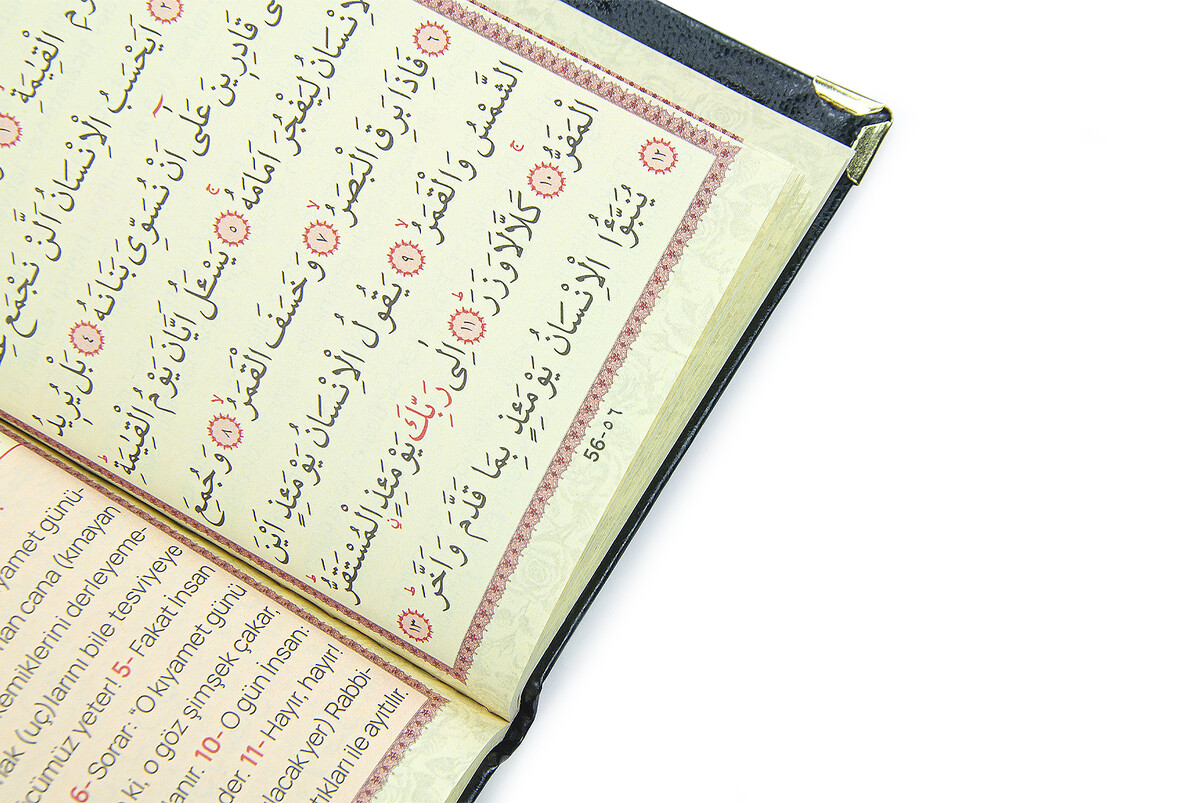 وْمِ الْقِيٰمَةِ ١
٢ اَيَحْسَبُ الْاِنْسَانُ اَلَّنْ نَجْمَعَ
ى قَادِرِينَ عَلٰٓى اَنْ نُسَوِّىَ بَنَانَهُ ٤ بَلْ يُرِيدُ
الْاِنْسَانُ لِيَفْجُرَ اَمَامَهُ ٥ يَسْـَٔلُ اَيَّانَ يَوْمُ الْقِيٰمَةِ
٦ فَاِذَا بَرِقَ الْبَصَرُ ٧ وَخَسَفَ الْقَمَرُ ٨ وَجُمِعَ
الشَّمْسُ وَالْقَمَرُ ٩ يَقُولُ الْاِنْسَانُ يَوْمَئِذٍ اَيْنَ
الْمَفَرُّ ١٠ كَلَّا لَا وَزَرَ ١١ اِلٰى رَبِّكَ يَوْمَئِذٍ الْمُسْتَقَرُّ
١٢ يُنَبَّؤُا الْاِنْسَانُ يَوْمَئِذٍ بِمَا قَدَّمَ وَاَخَّرَ ١٣
56-٥٦
yamet günü-
an cana (kınayan
kemiklerini derleyeme-
mak (uç)larını bile tesviyeye
cümüz yeter! 5- Fakat İnsan
6- Sorar: “O kıyamet günü
ki, o göz şimşek çakar,
lanır. 10- O gün İnsan:
der. 11- Hayır, hayır!
lacak yer) Rabbi-
tıkları ile ayıtılır.